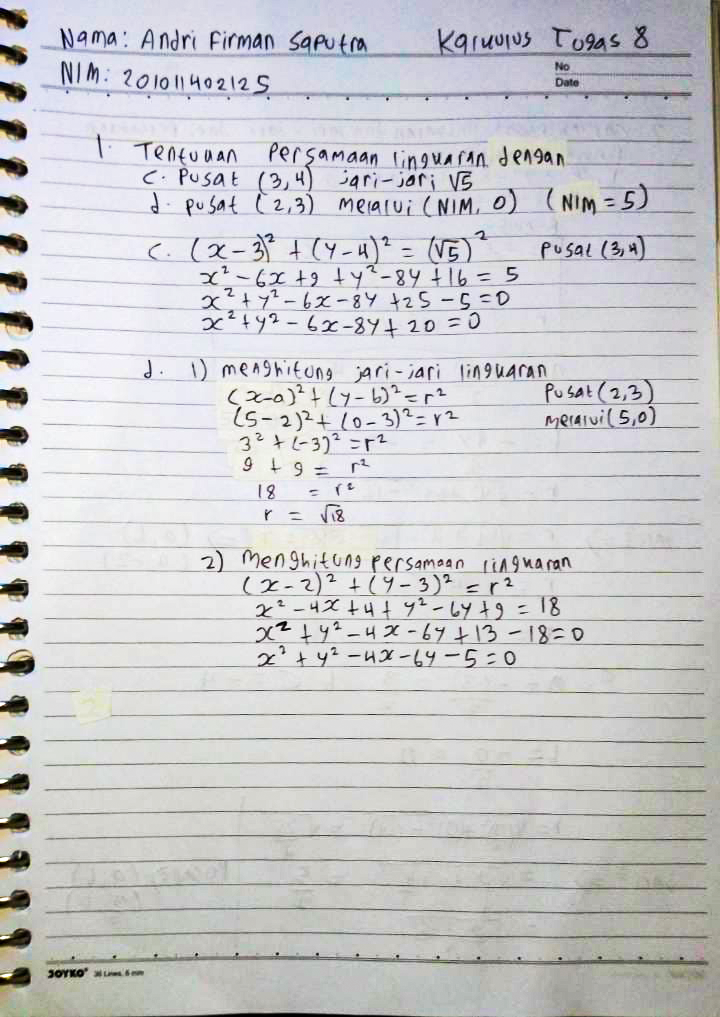 Nama: Andri Firman Saputra Kalkulus Tugas 8
NIM: 201011402125
No
Date
1. Tentukan Persamaan lingkaran dengan
c. Pusat (3,4) jari-jari √5
d. pusat (2,3) melalui (NIM, 0) (NIM = 5)
c. (x-3)² + (y-4)² = (√5)² pusat (3,4)
x² - 6x + 9 + y² - 8y + 16 = 5
x² + y² - 6x - 8y + 25 - 5 = 0
x² + y² - 6x - 8y + 20 = 0
d. 1) menghitung jari-jari lingkaran
(x-a)² + (y-b)² = r² Pusat (2,3)
(5-2)² + (0-3)² = r² melalui (5,0)
3² + (-3)² = r²
9 + 9 = r²
18 = r²
r = √18
2) Menghitung persamaan lingkaran
(x-2)² + (y-3)² = r²
x² - 4x + 4 + y² - 6y + 9 = 18
x² + y² - 4x - 6y + 13 - 18 = 0
x² + y² - 4x - 6y - 5 = 0
JOYKO® 36 Lines, 6 mm